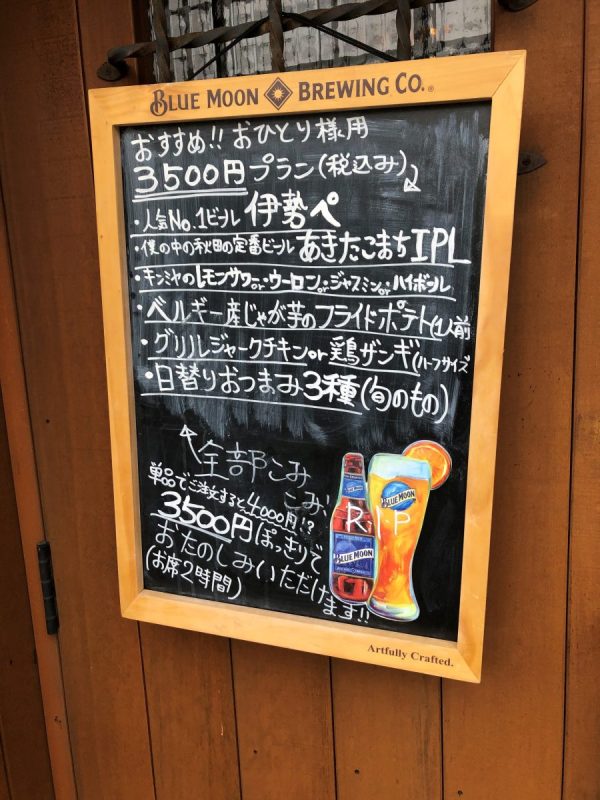 BLUE MOON BREWING CO.®
おすすめ!! おひとり様用
3500円プラン(税込み)
・人気No.1ビール 伊勢ペ
・僕の中の秋田の定番ビール あきたこまちIPL
・キンミヤのレモンサワーorウーロンorジャスミンorハイボール
・ベルギー産じゃが芋のフライドポテト(1人前
・グリルジャークチキンor鶏ザンギ(ハーフサイズ
・日替りおつまみ3種(旬のもの)
全部こみ
こみ!
単品でご注文すると4,000円!?
3500円ぽっきりで
おたのしみいただけ
ます!!
(お席2時間)
BLUE MOON
R.I.P
BLUE MOON
Artfully Crafted.